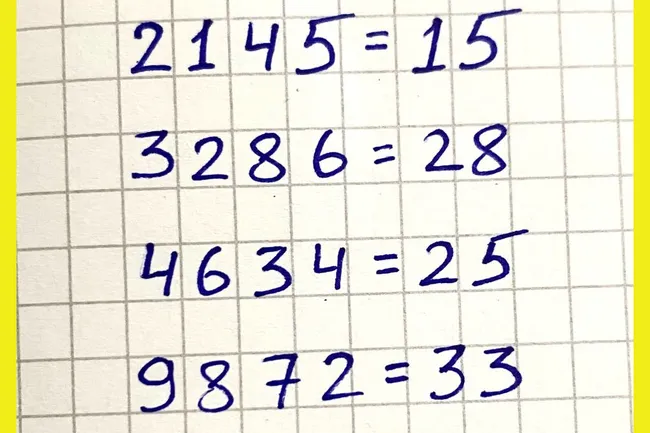 2145 = 15
3286 = 28
4634 = 25
9872 = 33